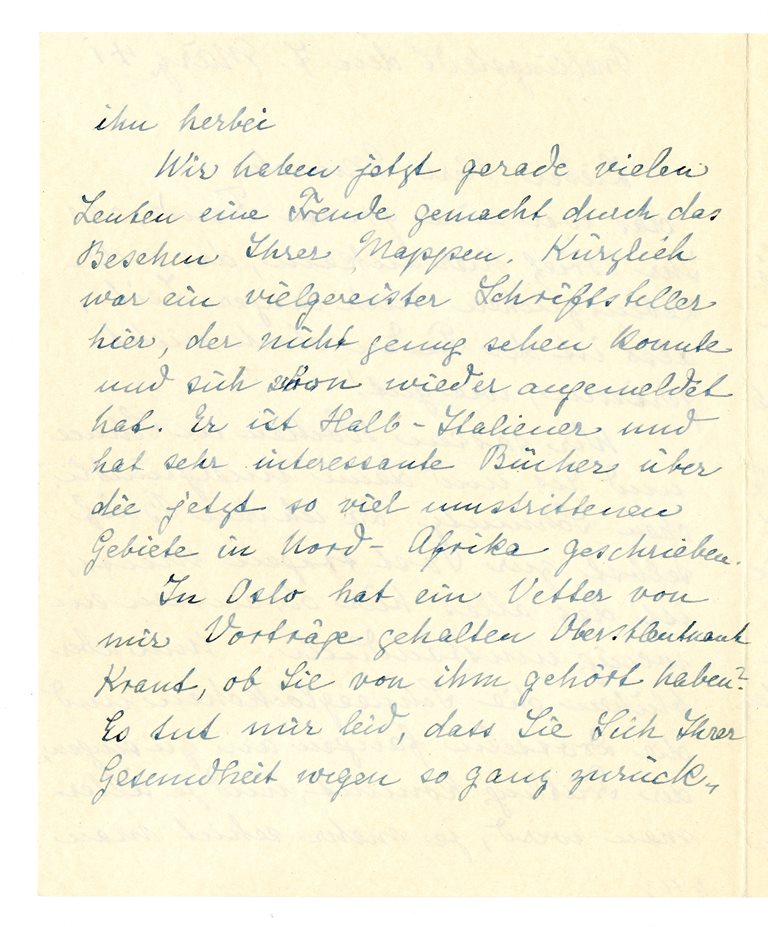 ihn herbei
Wir haben jetzt gerade vielen
Leuten eine Freude gemacht durch das
Besehen Ihrer Mappen. Kürzlich
war ein vielgereister Schriftsteller
hier, der nicht genug sehen konnte
und sich schon wieder angemeldet
hat. Er ist Halb-Italiener und
hat sehr interessante Bücher über
die jetzt so viel umstrittenen
Gebiete in Nord-Afrika geschrieben.
In Oslo hat ein Vetter von
mir Vorträge gehalten Oberstleutnant
Kraut, ob Sie von ihm gehört haben?
Es tut mir leid, dass Sie Sich Ihrer
Gesundheit wegen so ganz zurück„